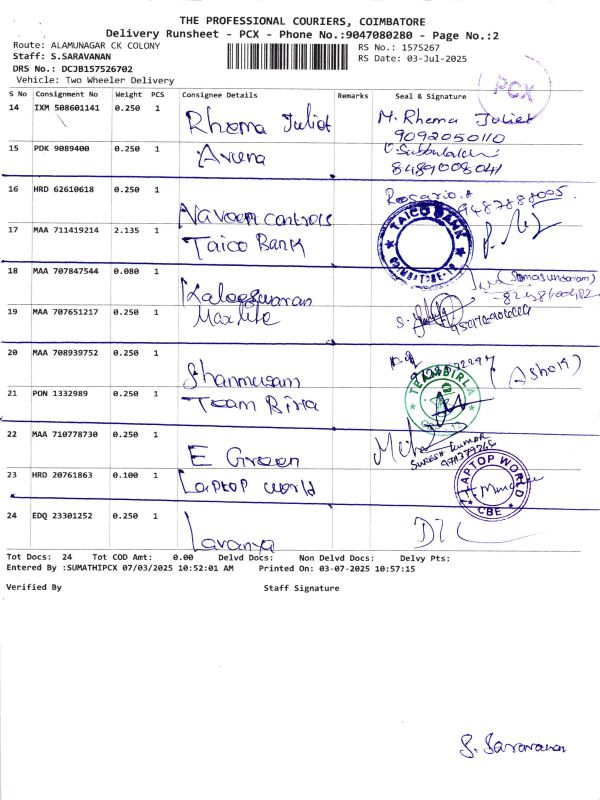 THE PROFESSIONAL COURIERS, COIMBATORE
Delivery Runsheet - PCX - Phone No.:9047080280 - Page No.:2
Route: ALAMUNAGAR CK COLONY
RS No.: 1575267
Staff: S.SARAVANAN
RS Date: 03-Jul-2025
DRS No.: DCJB157526702
Vehicle: Two Wheeler Delivery
PCX
S No Consignment No Weight PCS Consignee Details Remarks Seal & Signature
14 IXM 508601141 0.250 1 Rhema Juliet M. Rhema Juliet
9092050110
15 PDK 9089400 0.250 1 Aruna
8489008041
16 HRD 62610618 0.250 1 Naveen controls Rosario.A
9487888005
17 MAA 711419214 2.135 1 Taico Bank
TAICO BANK
COIMBATORE-12
18 MAA 707847544 0.080 1 Kaleeswaran (Somasundaram)
19 MAA 707651217 0.250 1 Maxlite
20 MAA 708939752 0.250 1 Shanmugam (Ashok)
21 PON 1332989 0.250 1 Team Birla
TEAM BIRLA
22 MAA 710778730 0.250 1 E Green
SURESH KUMAR
23 HRD 20761863 0.100 1 Laptop world
LAPTOP WORLD
CBE
24 EDQ 23301252 0.250 1 Lavanya
Tot Docs: 24 Tot COD Amt: 0.00 Delvd Docs: Non Delvd Docs: Delvy Pts:
Entered By :SUMATHIPCX 07/03/2025 10:52:01 AM Printed On: 03-07-2025 10:57:15
Verified By Staff Signature
S. Saravanan